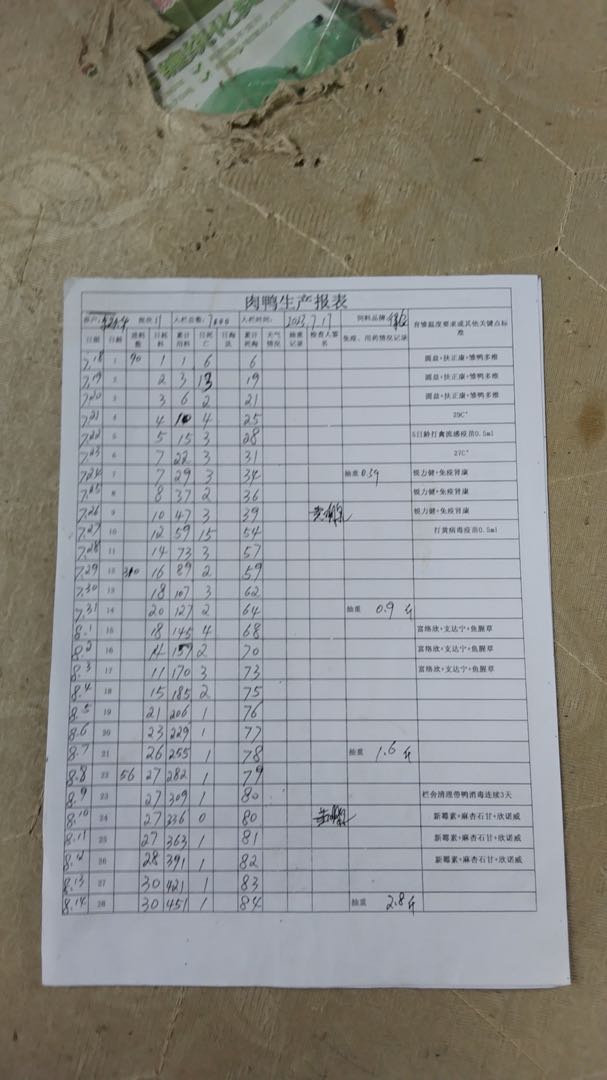 肉鸭生产报表
客户: 批次11 入栏总数: 入栏时间: 2023.7.17 饲料品牌: 育雏温度要求或其他关键点标准
日期 日龄 进料数 日耗料 累计用料 日死亡 日淘汰 累计死淘 天气情况 抽重记录 检查人签名 免疫、用药情况记录
7.18 1 90 1 1 6 6 圆益+扶正康+雏鸭多维
7.19 2 2 3 13 19 圆益+扶正康+雏鸭多维
7.20 3 3 6 2 21 圆益+扶正康+雏鸭多维
7.21 4 4 10 4 25 29C°
7.22 5 5 15 3 28 5日龄打禽流感疫苗0.5ml
7.23 6 7 22 3 31 27C°
7.24 7 7 29 3 34 抽重 锐力健+免疫肾康
7.25 8 8 37 2 36 锐力健+免疫肾康
7.26 9 10 47 3 39 锐力健+免疫肾康
7.27 10 12 59 15 54 打黄病毒疫苗0.5ml
7.28 11 14 73 3 57
7.29 12 16 89 2 59
7.30 13 18 107 3 62
7.31 14 20 127 2 64 抽重 0.9斤
8.1 15 18 145 4 68 富络欣+支达宁+鱼腥草
8.2 16 2 70 富络欣+支达宁+鱼腥草
8.3 17 11 170 3 73 富络欣+支达宁+鱼腥草
8.4 18 15 185 2 75
8.5 19 21 206 1 76
8.6 20 23 229 1 77
8.7 21 26 255 1 78 抽重 1.6斤
8.8 22 56 27 282 1 79
8.9 23 27 309 1 80 栏舍清理带鸭消毒连续3天
8.10 24 27 336 0 80 新霉素+麻杏石甘+欣诺威
8.11 25 27 363 1 81 新霉素+麻杏石甘+欣诺威
8.12 26 28 391 1 82 新霉素+麻杏石甘+欣诺威
8.13 27 30 421 1 83
8.14 28 30 451 1 84 抽重 2.8斤